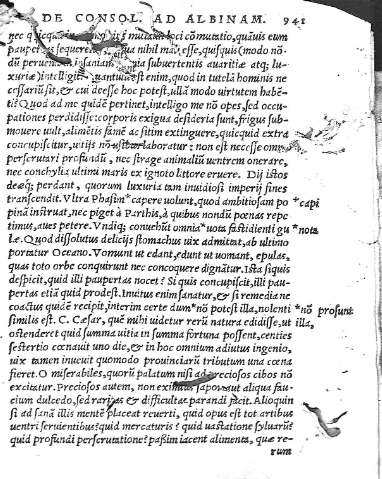 DE CONSOL. AD ALBINAM. 941
nec quicquam mutati loci cōmutatio, quāuis eum
pauper sequeretur nihil mali esse, quisquis (modo nō-
dū peruenit insaniam subuertentis auaritiæ atq; lu-
xuriæ) intelligit quantulū est enim, quod in tutelā hominis ne
cessariū sit, & cui deesse hoc potest, ullā modo uirtutem habē-
ti? Quod ad me quidē pertinet, intelligo me nō opes, sed occu-
pationes perdidisse: corporis exigua desideria sunt, frigus sub-
mouere uult, alimētis famē ac sitim extinguere, quicquid extra
concupiscitur, uitijs laboratur: non est necesse omne
perscrutari profundū, nec strage animaliū uentrem onerare,
nec conchylia ultimi maris ex ignoto littore eruere. Dij istos
deæq; perdant, quorum luxuria tam inuidiosi imperij fines
transcendit. Vltra Phasin *capere uolunt, quod ambitiosam po *capi
pinā instruat, nec piget à Parthis, à quibus nondū pœnas repe
timus, aues petere. Vndiq; conuehūt omnia *uota fastidienti gu *nota
læ. Quod dissolutus delicijs stomachus uix admittat, ab ultimo
portatur Oceano. Vomunt ut edant, edunt ut uomant, epulas,
quas toto orbe conquirunt nec concoquere dignātur. Ista siquis
despicit, quid illi paupertas nocet? Si quis concupiscit, illi pau-
pertas etiā quid prodest. Inuitus enim sanatur, & si remedia ne
coactus quidē recipit, interim certe dum *nō potest illa, nolenti *nō prosunt
similis est. C. Cæsar, quē mihi uidetur rerū natura edidisse, ut illa,
ostenderet quid summa uitia in summa fortuna possent, centies
sestertio cœnauit uno die, & in hoc omnium adiutus ingenio,
uix tamen inuenit quomodo prouinciarū tributum una cœna
fieret. O miserabiles, quorū palatum nisi ad preciosos cibos nō
excitatur. Preciosos autem, non eximius sapor aut aliqua fau-
cium dulcedo, sed raritas & difficultas parandi facit. Alioquin
si ad sanā illis mentē placeat reuerti, quid opus est tot artibus
uentri seruientibus? quid mercaturis? quid uastatione syluarū?
quid profundi perscrutatione? paßim iacent alimenta, quæ re-
rum